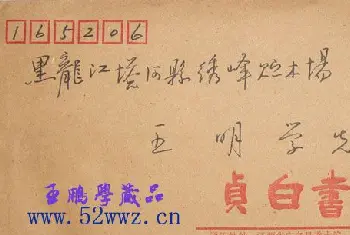 165206
黑龍江塔河縣綉峰贮木場
王明学先
王鹏學藏品
貞白書
www.52wwz.cn